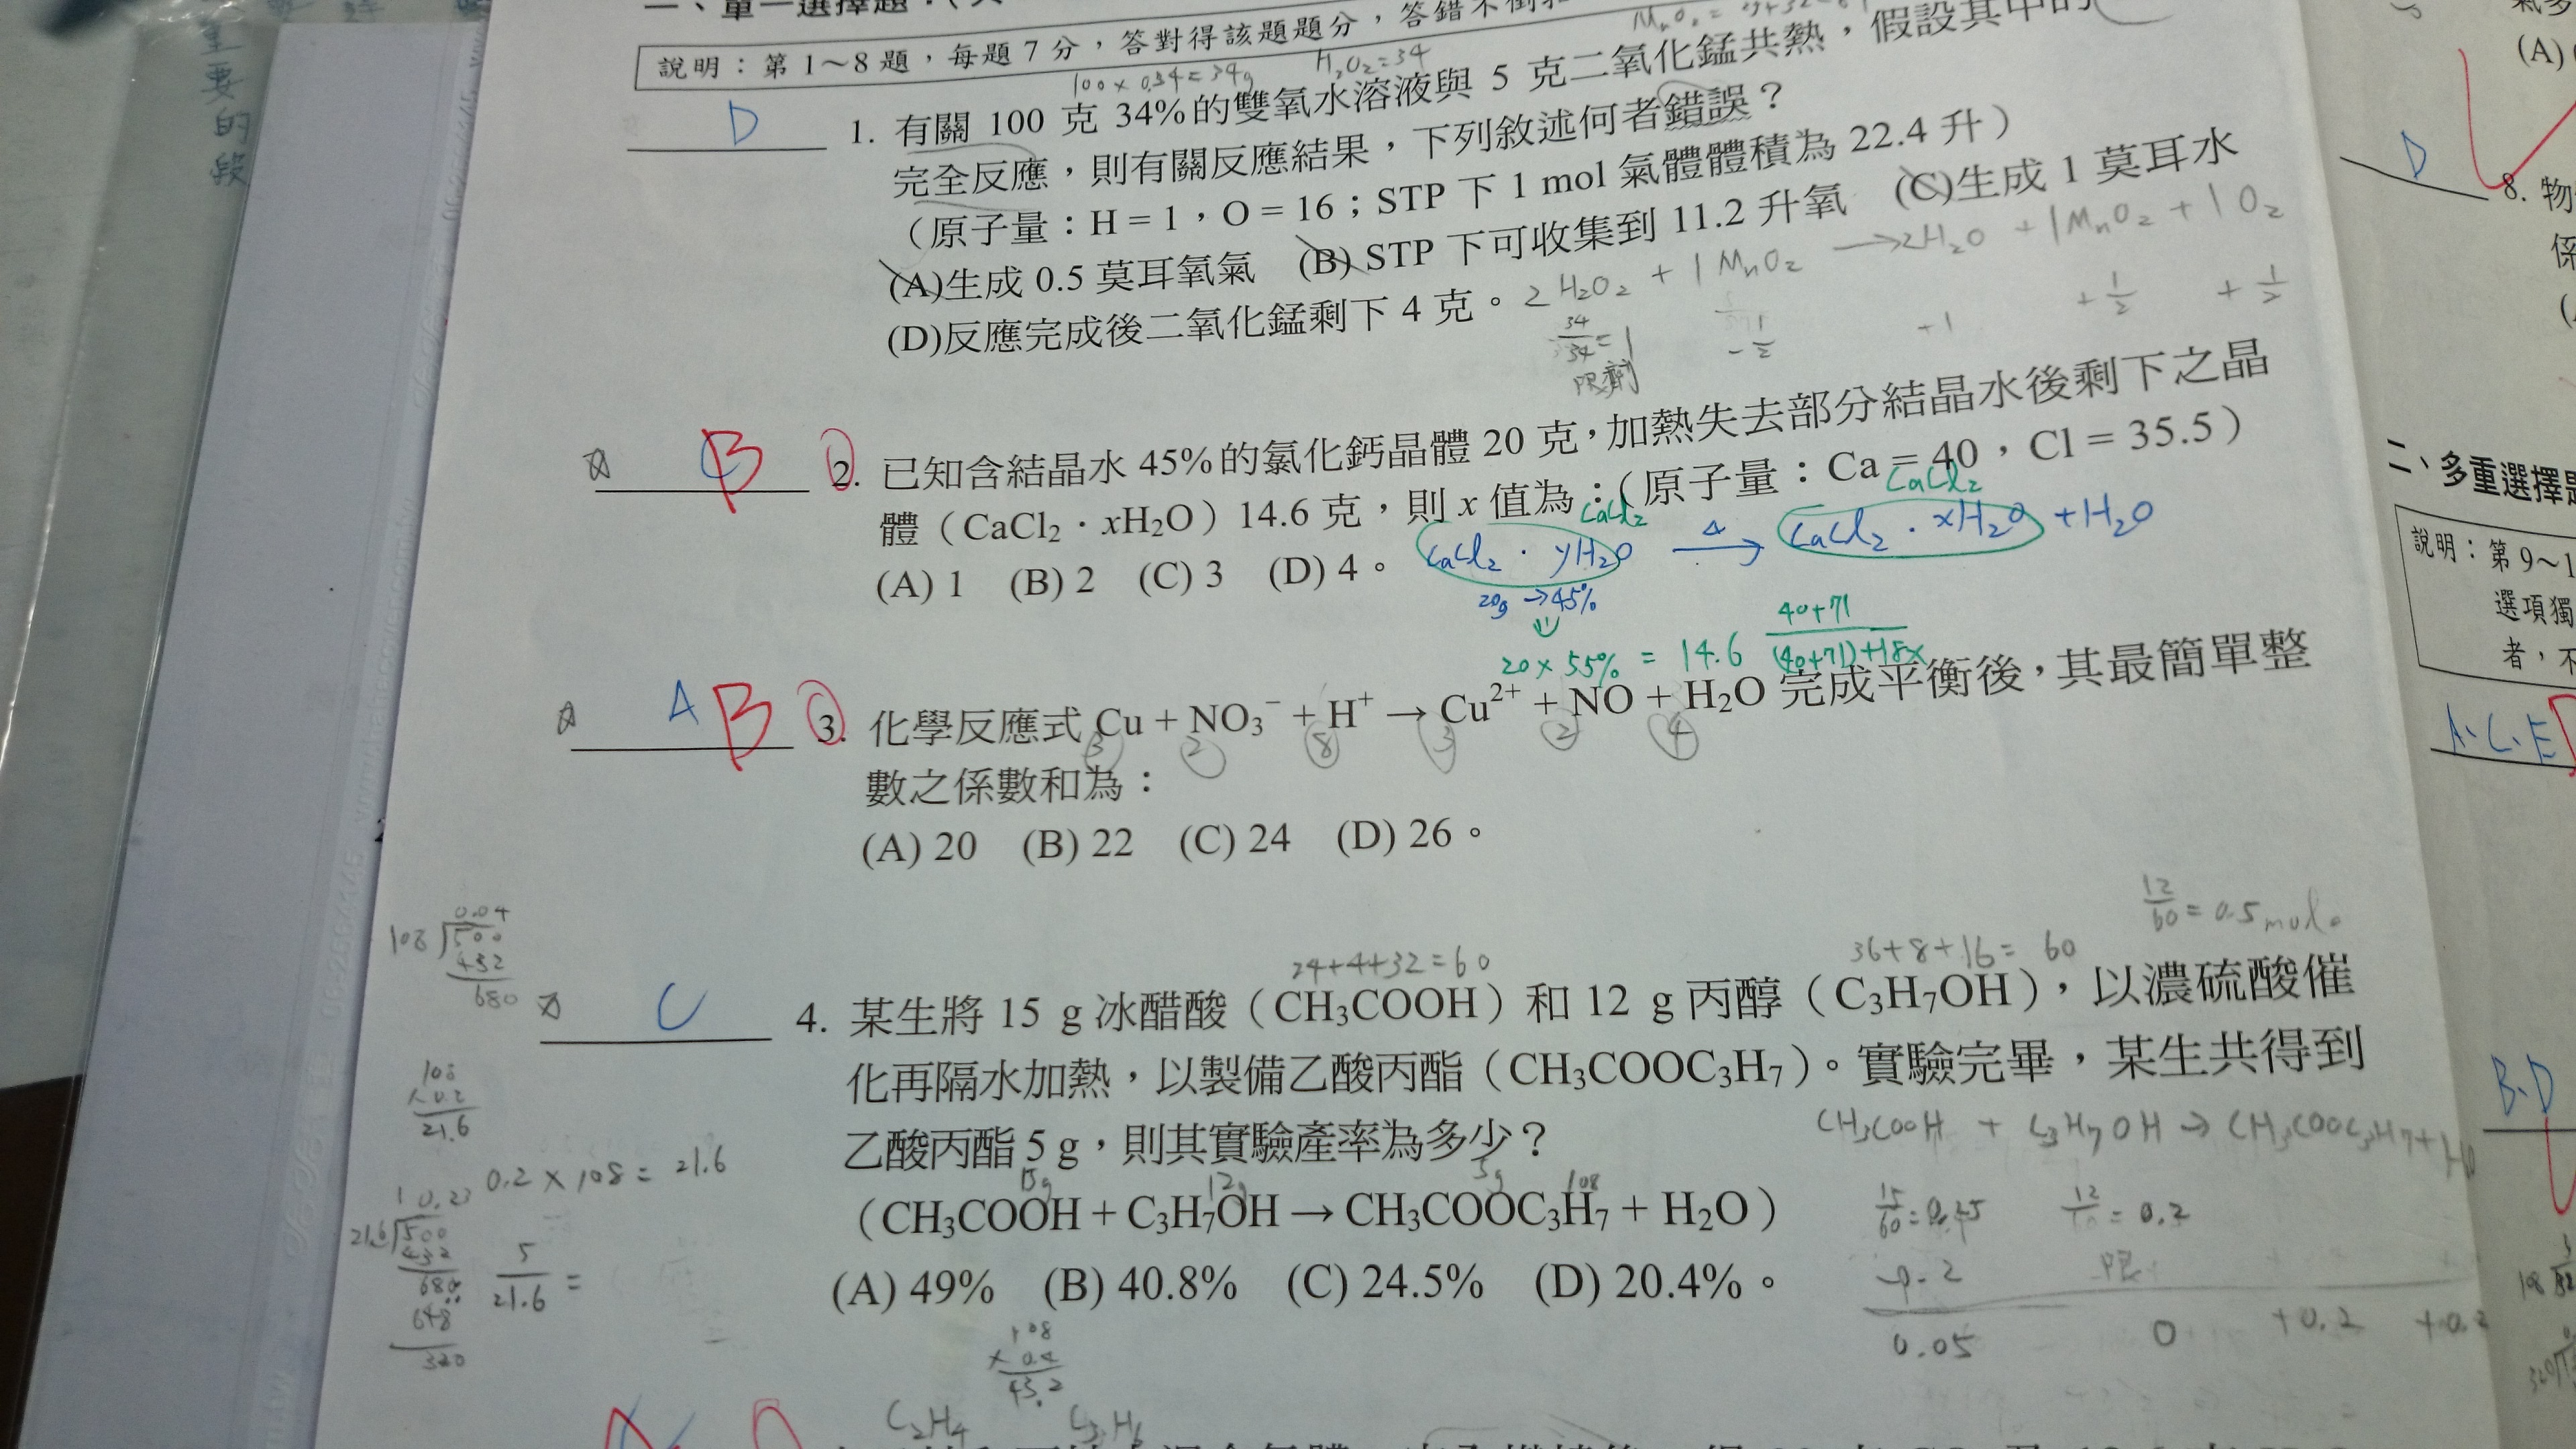 重要的段
一、單一選擇題：
說明：第 1～8 題，每題 7 分，答對得該題題分，答錯不倒扣
100 × 0.34 = 34g
H₂O₂ = 34
D
1. 有關 100 克 34%的雙氧水溶液與 5 克二氧化錳共熱，假設其中的
完全反應，則有關反應結果，下列敘述何者錯誤？
（原子量：H = 1，O = 16；STP 下 1 mol 氣體體積為 22.4 升）
(A)生成 0.5 莫耳氧氣 (B) STP 下可收集到 11.2 升氧 (C)生成 1 莫耳水
(D)反應完成後二氧化錳剩下 4 克。
2 H₂O₂ + 1 MnO₂ → 2H₂O + 1MnO₂ + 1 O₂
34/34 = 1 -1/2 +1 +1/2 +1/2
限劑
B
2. 已知含結晶水 45%的氯化鈣晶體 20 克，加熱失去部分結晶水後剩下之晶
體（CaCl₂．xH₂O）14.6 克，則 x 值為：（原子量：Ca = 40，Cl = 35.5）
(A) 1 (B) 2 (C) 3 (D) 4。
CaCl₂ CaCl₂
CaCl₂．yH₂O →Δ CaCl₂．xH₂O + H₂O
20g → 45%
20 × 55% = 14.6 (40+71)/((40+71)+18x)
A B
3. 化學反應式 Cu + NO₃⁻ + H⁺ → Cu²⁺ + NO + H₂O 完成平衡後，其最簡單整
3 2 8 3 2 4
數之係數和為：
(A) 20 (B) 22 (C) 24 (D) 26。
12/60 = 0.5 mol
24+4+32=60
36+8+16= 60
C
4. 某生將 15 g 冰醋酸（CH₃COOH）和 12 g 丙醇（C₃H₇OH），以濃硫酸催
化再隔水加熱，以製備乙酸丙酯（CH₃COOC₃H₇）。實驗完畢，某生共得到
乙酸丙酯 5 g，則其實驗產率為多少？
CH₃COOH + C₃H₇OH → CH₃COOC₃H₇ + H₂O
15g 12g 5g 108
（CH₃COOH + C₃H₇OH → CH₃COOC₃H₇ + H₂O）
(A) 49% (B) 40.8% (C) 24.5% (D) 20.4%。
15/60 = 0.25 = 0.2
-0.2 限
0.05 0 +0.2
0.04
108 500
432
680
108
× 0.2
21.6
0.2 × 108 = 21.6
21.6 500
432
680
648
320
5/21.6 =
108
× 0.4
43.2
C₂H₄ C₃H₆
(A)
D
8. 物
係
二、多重選擇題
說明：第 9～1
選項獨
者，不
A.C.E
B.D